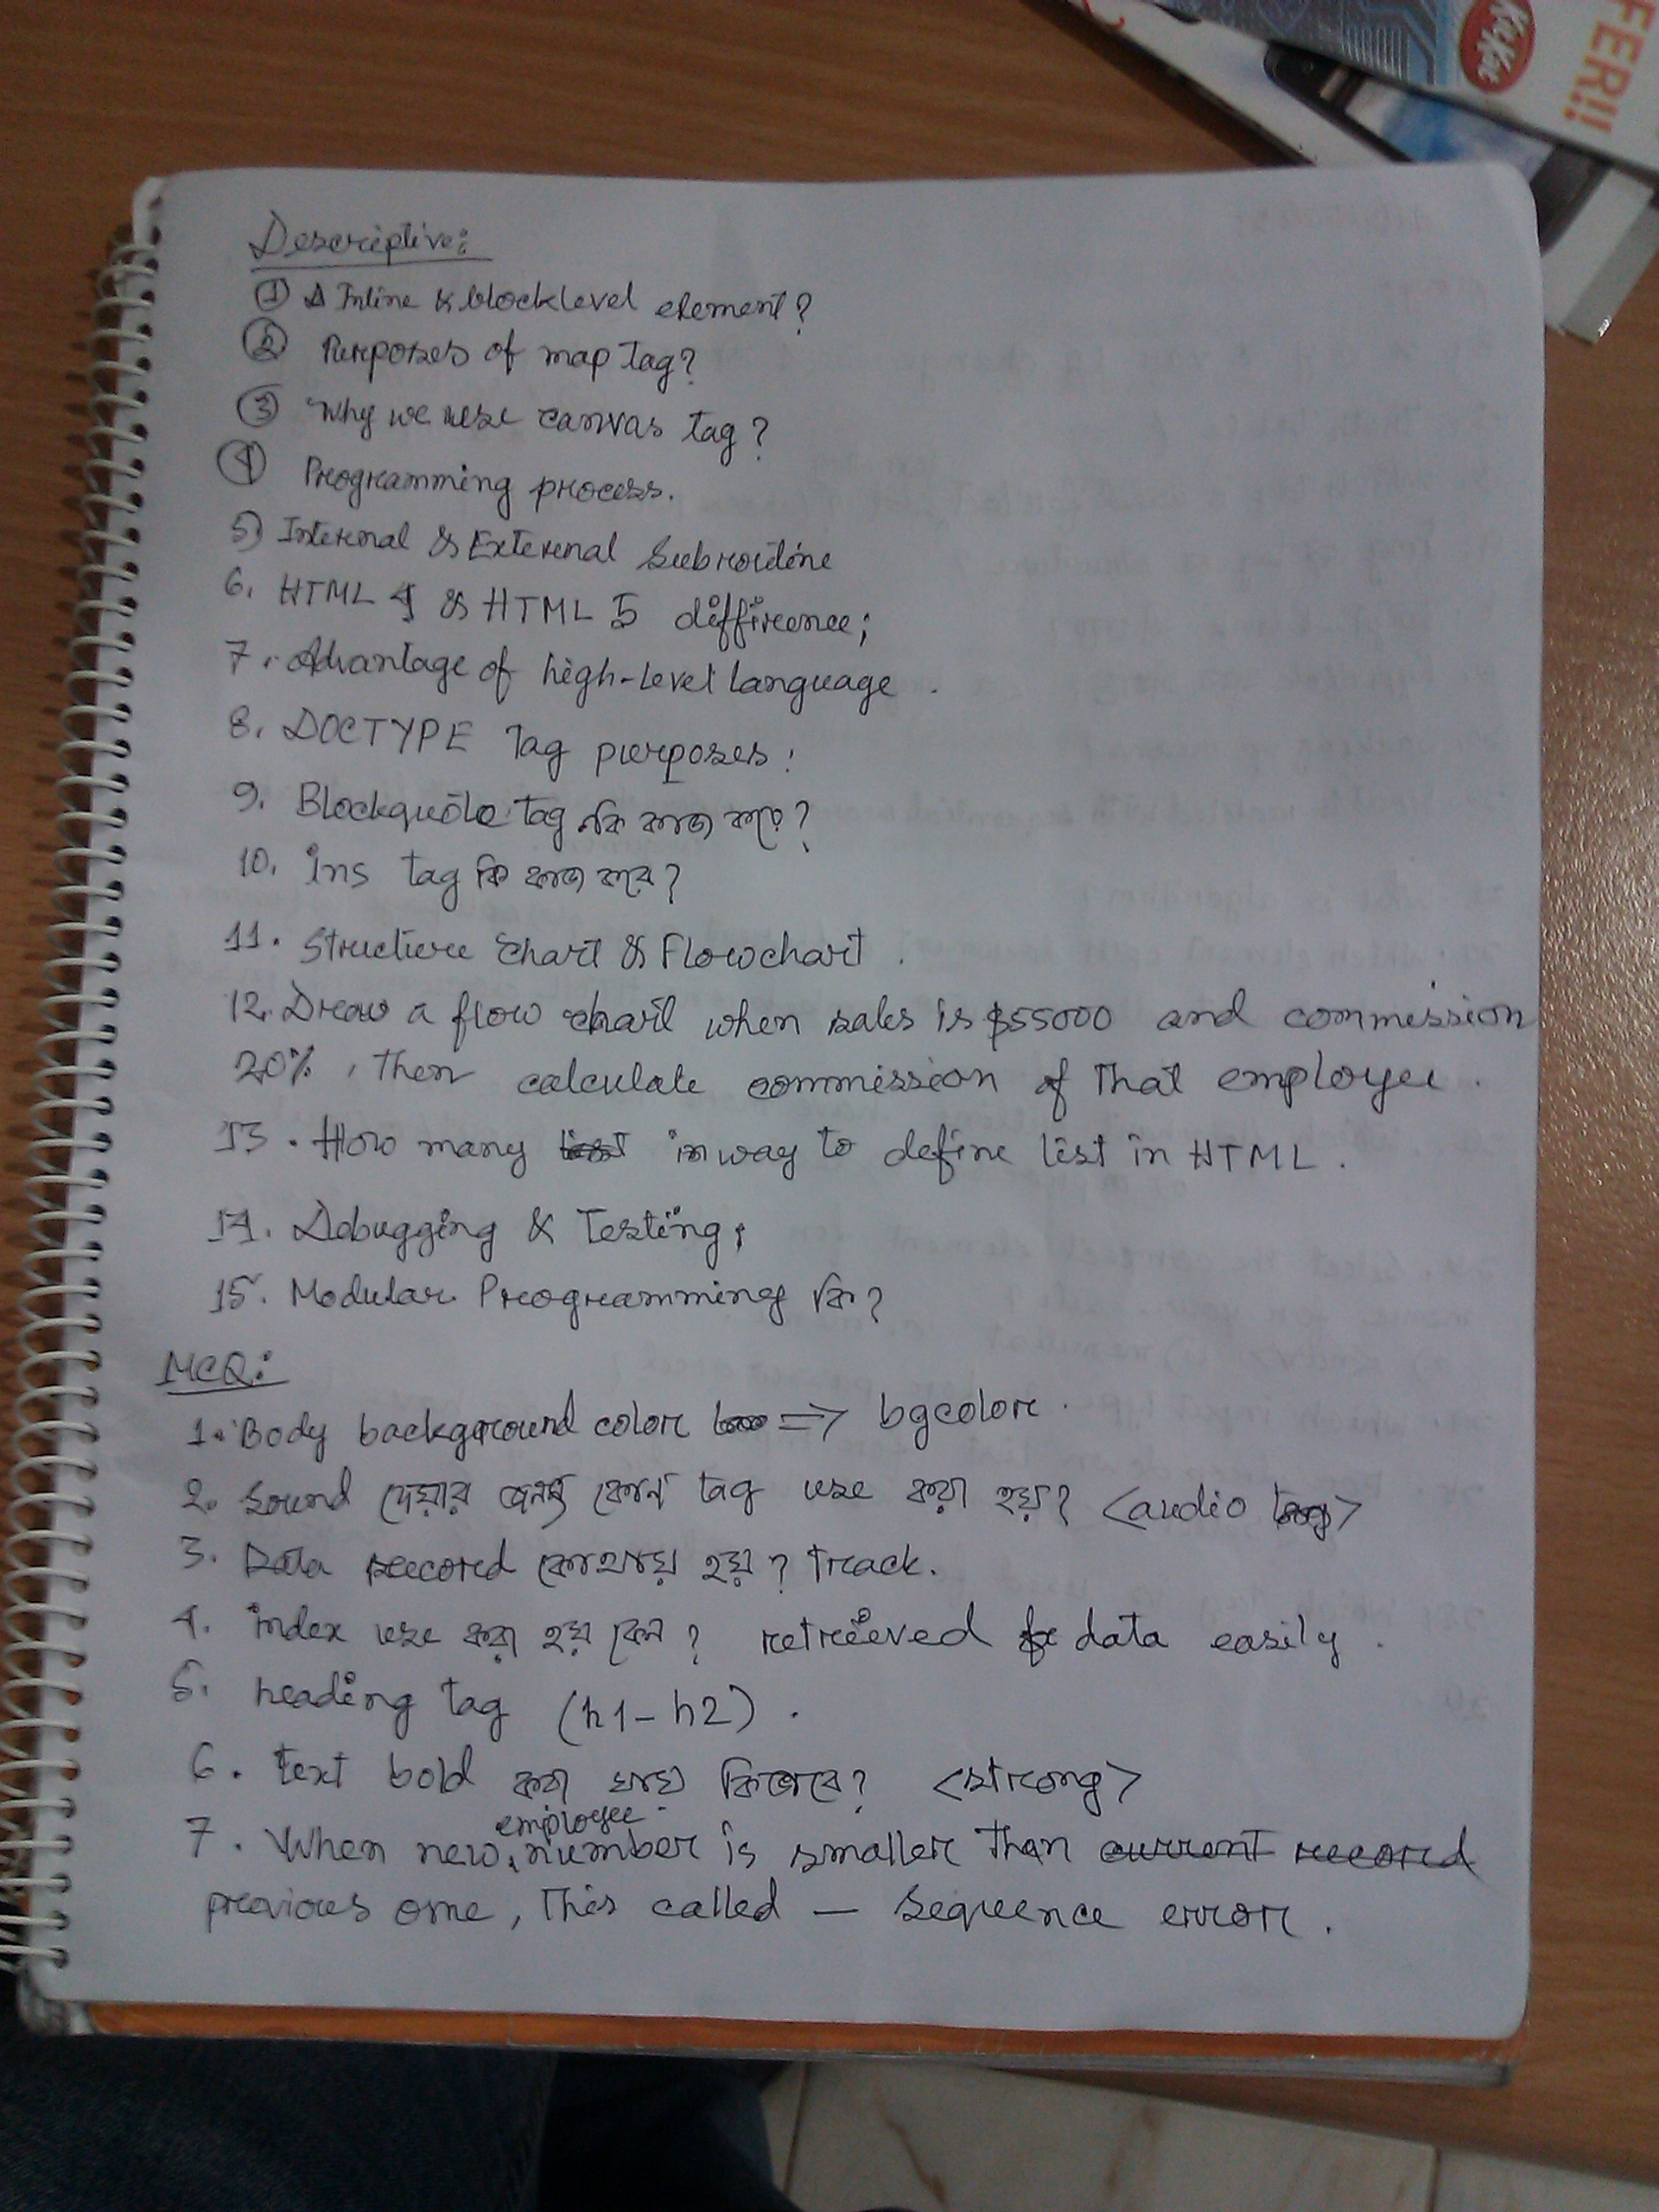 FER!!
Descriptive:
① Inline & blocklevel element?
② Purposes of map tag?
③ Why we use canvas tag?
④ Programming process.
5) Internal & External Subroutine
6. HTML 4 & HTML 5 difference;
7. Advantage of high-level language.
8. DOCTYPE Tag purposes:
9. Blockquote tag কি কাজ করে?
10. ins tag কি কাজ করে?
11. Structure Chart & Flowchart.
12. Draw a flow chart when sales is $55000 and commission
20%, then calculate commission of that employee.
13. How many in way to define list in HTML.
14. Debugging & Testing;
15. Modular Programming কি?
MCQ:
1. Body background color => bgcolor.
2. Sound দেয়ার জন্য কোন tag use করা হয়? <audio tag>
3. Data record কোথায় হয়? Track.
4. index use করা হয় কেন? retrieved data easily.
5. heading tag (h1-h2).
6. text bold করা যায় কিভাবে? <strong>
7. When new employee number is smaller than current record
previous one, This called — Sequence error.